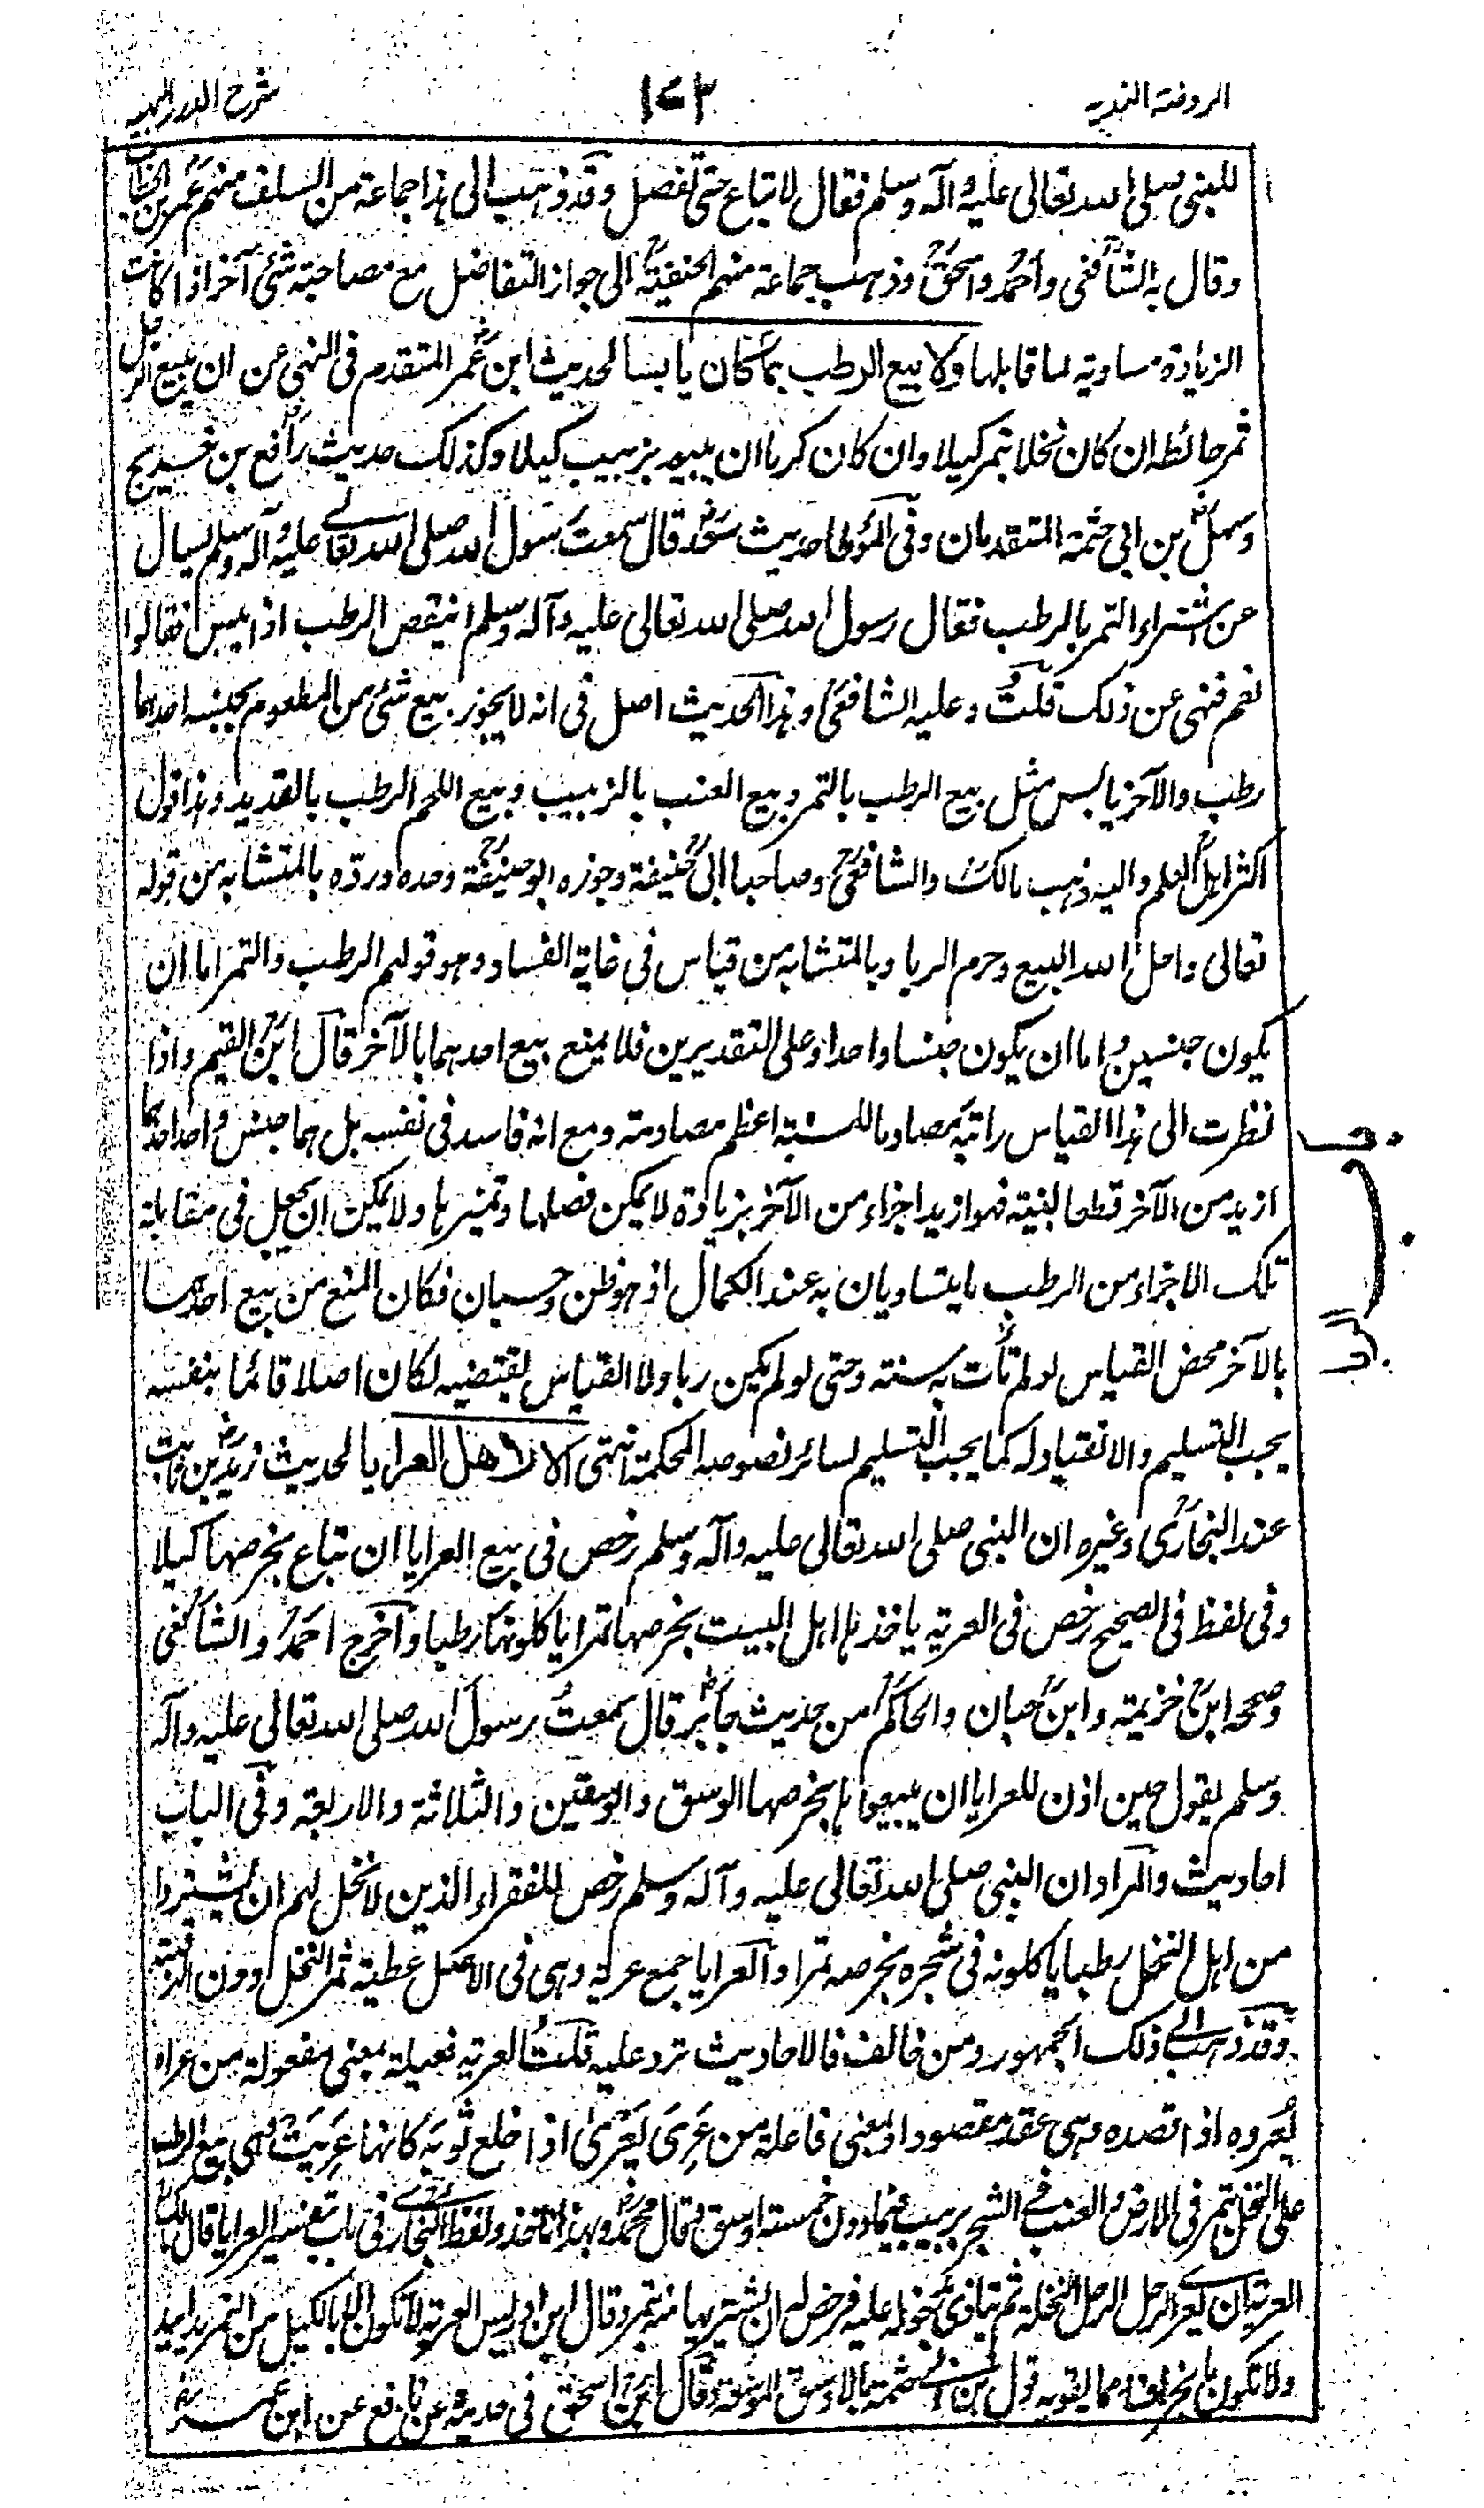 الروضة الندیه
۱۷۳
شرح الدرر البهیه
للنبی صلی الله تعالی علیه وآله وسلم فقال لا تباع حتی تفصل وقد ذهب الی هذا جماعة من السلف منهم عمر بن الخطاب
وقال به الشافعی واحمد واسحق وذهب جماعة منهم الحنفیة الی جواز التفاضل مع مصاحبة شئ آخر اذا کانت
الزیادة مساویة لما قابلها ولا بیع الرطب بما کان یابسا لحدیث ابن عمر المتقدم فی النهی عن ان یبیع الرجل
ثمر حائطه ان کان نخلا بتمر کیلا وان کان کرما ان یبیعه بزبیب کیلا وکذلک حدیث رافع بن خدیج
وسهل بن ابی حثمة المتقدمان وفی الموطا حدیث سعد قال سمعت رسول الله صلی الله تعالی علیه وآله وسلم یسأل
عن اشتراء التمر بالرطب فقال رسول الله صلی الله تعالی علیه وآله وسلم اینقص الرطب اذا یبس فقالوا
نعم فنهی عن ذلک قلت وعلیه الشافعی وهذا الحدیث اصل فی انه لا یجوز بیع شئ من المطعوم بجنسه احدهما
رطب والآخر یابس مثل بیع الرطب بالتمر وبیع العنب بالزبیب وبیع اللحم الرطب بالقدید وهذا قول
اکثر اهل العلم والیه ذهب مالک والشافعی وصاحبا ابی حنیفة وجوزه ابو حنیفة وحده ورده بالمتشابه من قوله
تعالی واحل الله البیع وحرم الربا وبالمتشابه من قیاس فی غایة الفساد وهو قولهم الرطب والتمر اما ان
یکون جنسین واما ان یکون جنسا واحدا وعلی التقدیرین فلا یمنع بیع احدهما بالآخر قال ابن القیم واذا
نظرت الی هذا القیاس رأیته مصادما للسنة اعظم مصادمة ومع انه فاسد فی نفسه بل هما جنس واحد احدهما
ازید من الآخر قطعا بنیته فهو ازید اجزاء من الآخر بزیادة لا یمکن فصلها وتمیزها ولا یمکن ان یجعل فی مقابلة
تلک الاجزاء من الرطب ما یتساویان به عند الکمال اذ هو ظن وحسبان فکان المنع من بیع احدهما
بالآخر محض القیاس لو لم تأت به سنة وحتی لو لم یکن ربا ولا القیاس یقتضیه لکان اصلا قائما بنفسه
یجب التسلیم والانقیاد له کما یجب التسلیم لسائر نصوصه المحکمة انتهی الا لاهل العرایا لحدیث زید بن ثابت
عند البخاری وغیره ان النبی صلی الله تعالی علیه وآله وسلم رخص فی بیع العرایا ان تباع بخرصها کیلا
وفی لفظ فی الصحیح رخص فی العریة یأخذها اهل البیت بخرصها تمرا یأکلونها رطبا واخرج احمد والشافعی
وصححه ابن خزیمة وابن حبان والحاکم من حدیث جابر قال سمعت رسول الله صلی الله تعالی علیه وآله
وسلم یقول حین اذن للعرایا ان یبیعوها بخرصها الوسق والوسقین والثلاثة والاربعة وفی الباب
احادیث والمراد ان النبی صلی الله تعالی علیه وآله وسلم رخص للفقراء الذین لا نخل لهم ان یشتروا
من اهل النخل رطبا یاکلونه فی شجره بخرصه تمرا والعرایا جمع عریة وهی فی الاصل عطیة ثمر النخل دون الرقبة
وقد ذهب الی ذلک الجمهور ومن خالف فالاحادیث ترد علیه قلت العریة فعیلة بمعنی مفعولة من عراه
یعروه اذا قصده وهی عقد مقصود او بمعنی فاعلة من عَرِیَ یَعْرَی اذا خلع ثوبه کانها عَرِیَتْ وهی بیع الرطب
علی النخل بتمر فی الارض والعنب فی الشجر بزبیب فیما دون خمسة اوسق قال محمد وبهذا نأخذ ولفظ البخاری فی باب تفسیر العرایا قال مالک
العریة ان یعری الرجل الرجل النخلة ثم یتأذی بدخوله علیه فرخص له ان یشتریها منه بتمر وقال ابن ادریس العریة لا تکون الا بالکیل من التمر یدا بید
ولا تکون بالجزاف ومما یقویه قول سهل بن ابی حثمة بالاوسق الموسقة وقال ابن اسحق فی حدیثه عن نافع عن ابن عمر